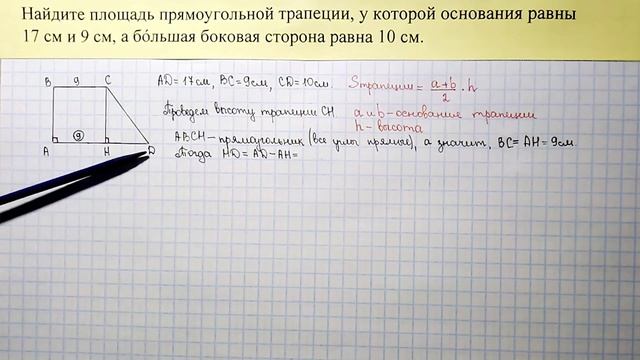 Найдите площадь прямоугольной трапеции, у которой основания равны
17 см и 9 см, а бо́льшая боковая сторона равна 10 см.
B 9 C
9
A H D
AD = 17см, BC = 9см, CD = 10см.
Sтрапеции = a+b/2 · h
Проведем высоту трапеции CH.
a и b - основание трапеции
h - высота
ABCH - прямоугольник (все углы прямые), а значит, BC = AH = 9см.
Тогда HD = AD - AH =